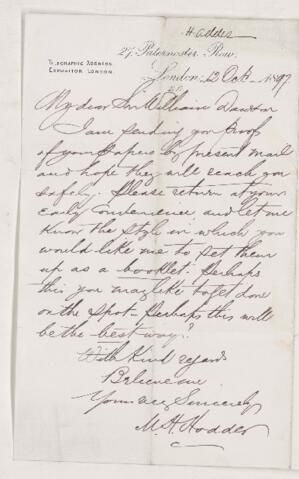 Hodder
27, Paternoster Row,
TELEGRAPHIC ADDRESS
EXPOSITOR LONDON.
London, 12 Oct 1897
My dear Sir William Dawson
I am sending you Proof
of your Papers by present mail
and hope they will reach you
safely. Please return at your
early convenience, and let me
know the style in which you
would like me to set them
up as a booklet. Perhaps
this you may like to get done
on the spot - Perhaps this will
be the best way?
With kind regards
Believe me
Yours very Sincerely
M. H. Hodder